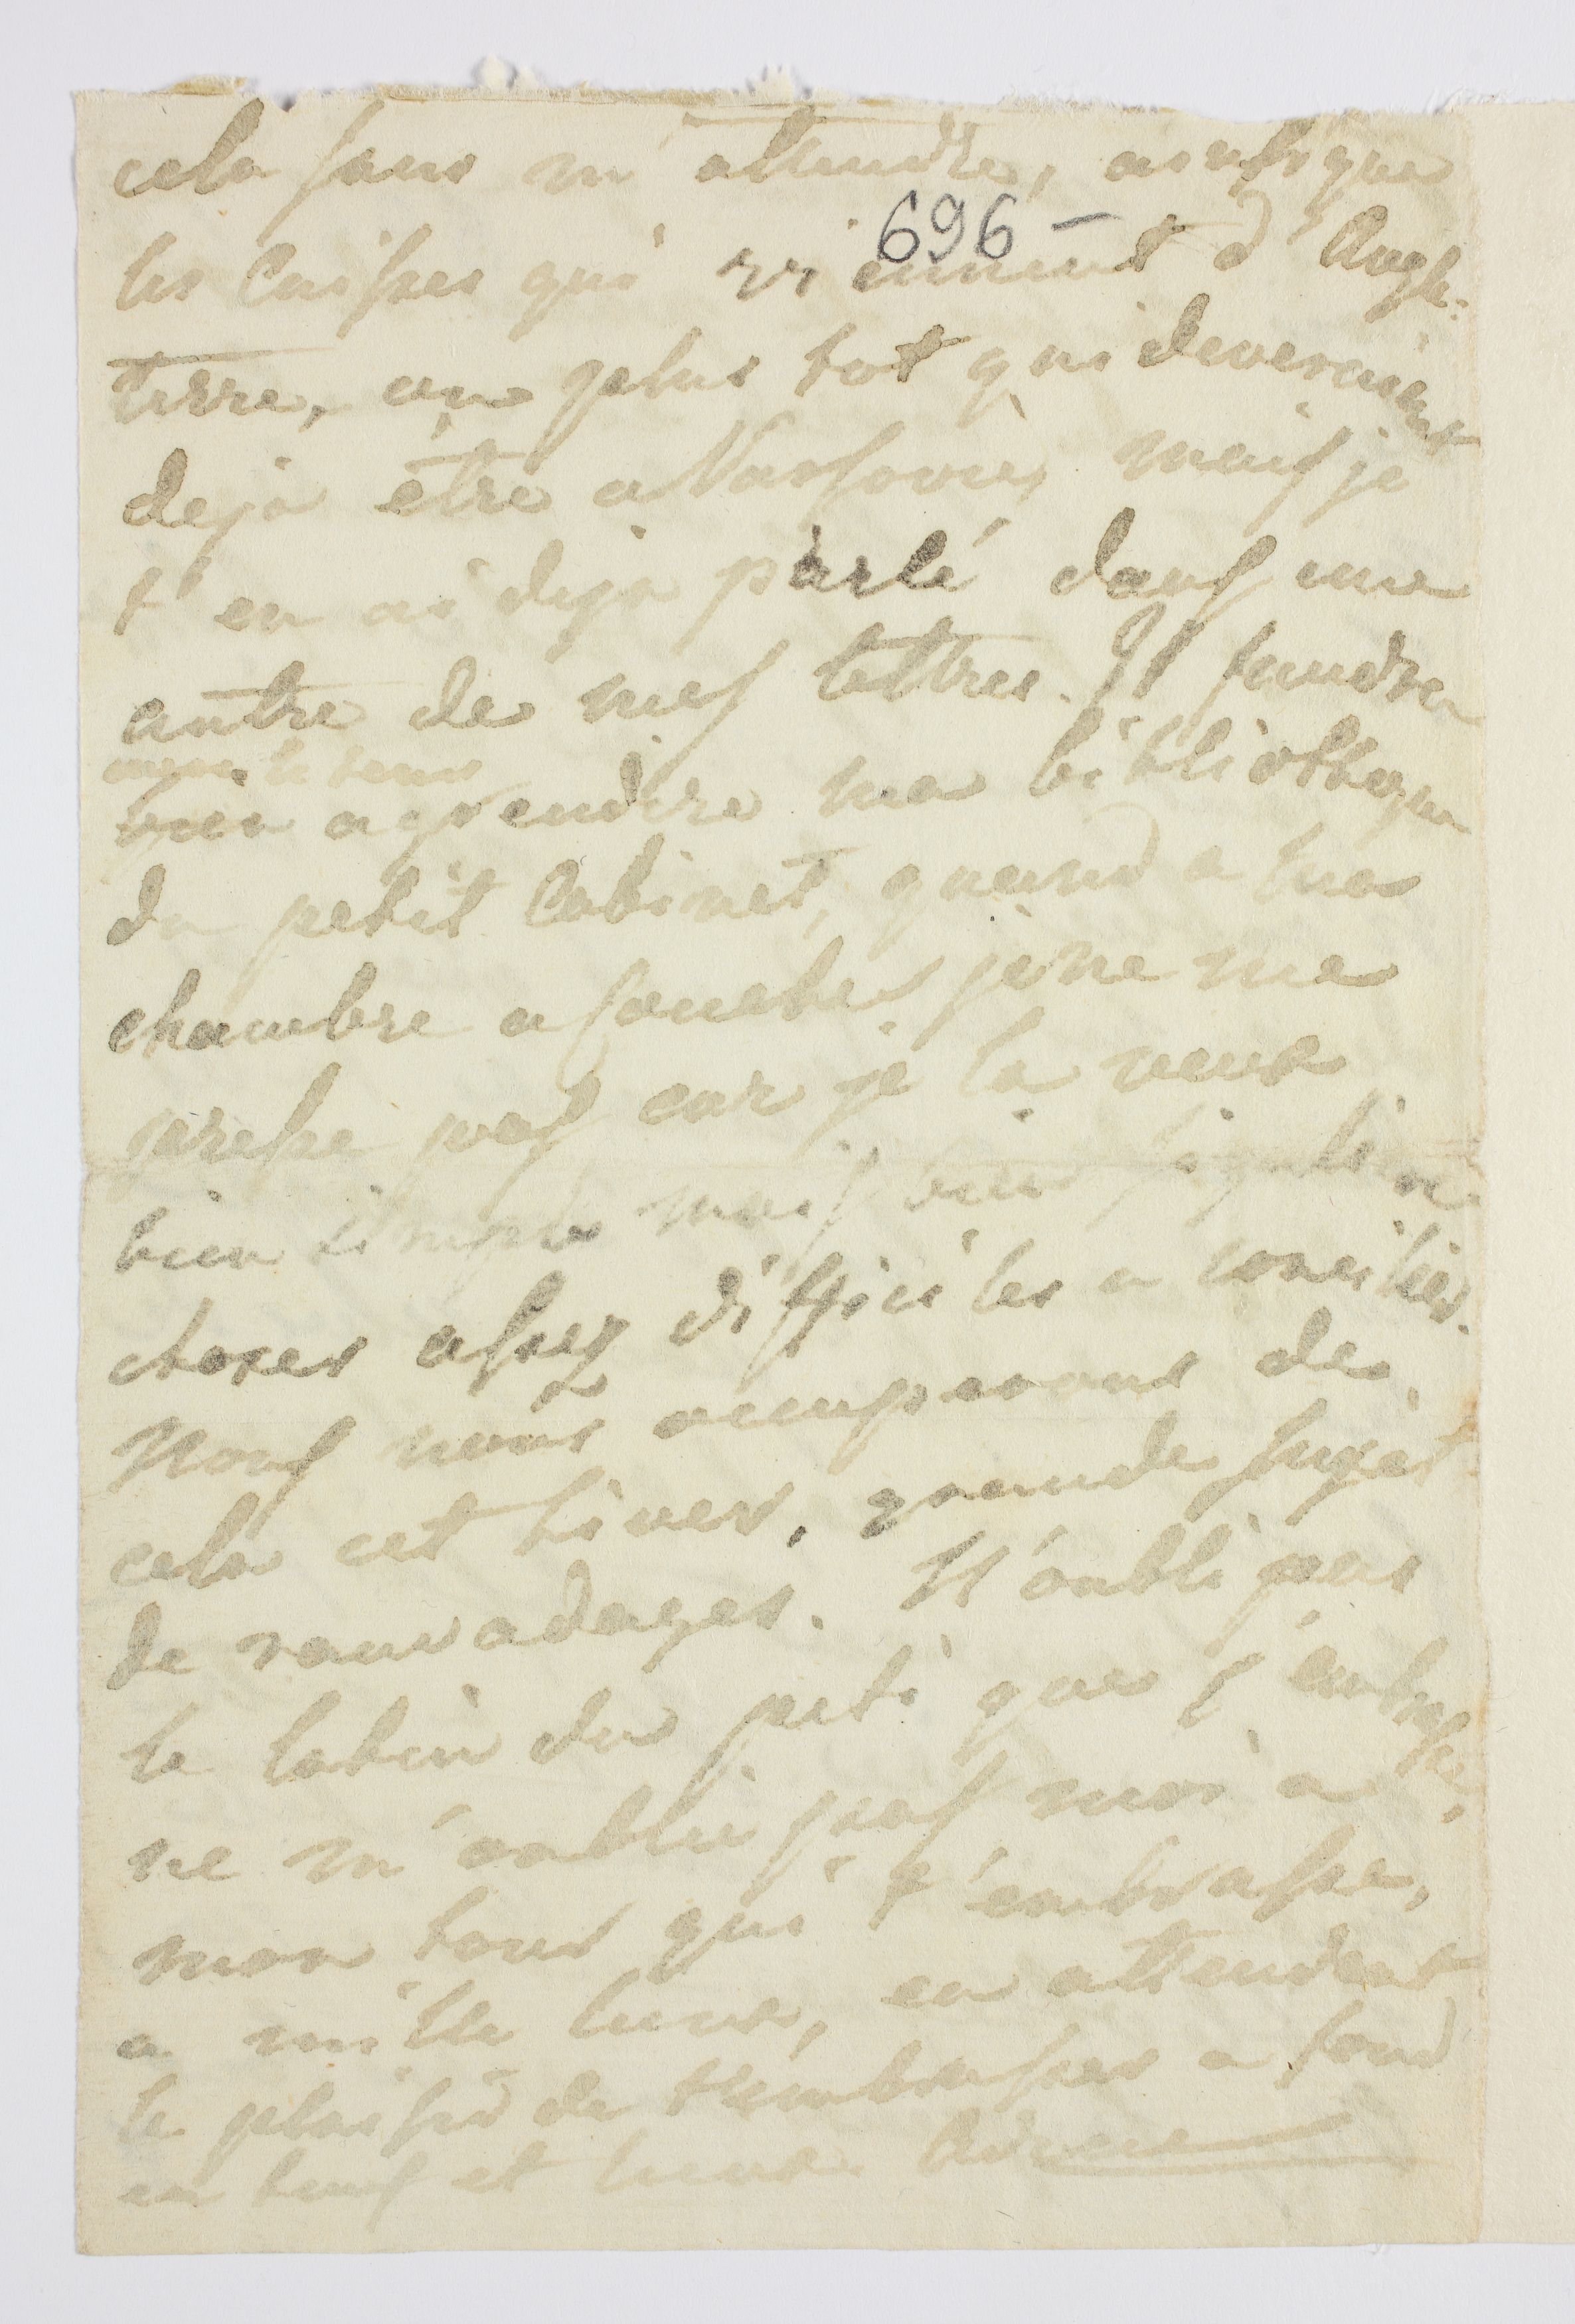 cela sans m'attendre, ainsi que
696 –
les Caisses qui viennent d'Angle-
terre, ou plus tot qui deveroient
deja être a Varsovie, mais je
t'en ai deja parlé dans une
autre de mes lettres. Il faudra
avec le tems
bien a prendre ma bibliotheque
du petit Cabinet, quand a ma
chambre a coucher je ne me
presse pas car je la veux
bien simple mais bien
choses assez difficiles a concilier.
Nous nous occuperons de
cela cet hiver, grande sujet
de ravadages. N'oubli pas
le du peti que j'embrasse,
ne m'oublie pas moi a
mon tour qui t'embrasse,
a mille lieux, en attendent
le plaisir de t'embrasser a fond
en tems et lieux. Adieu